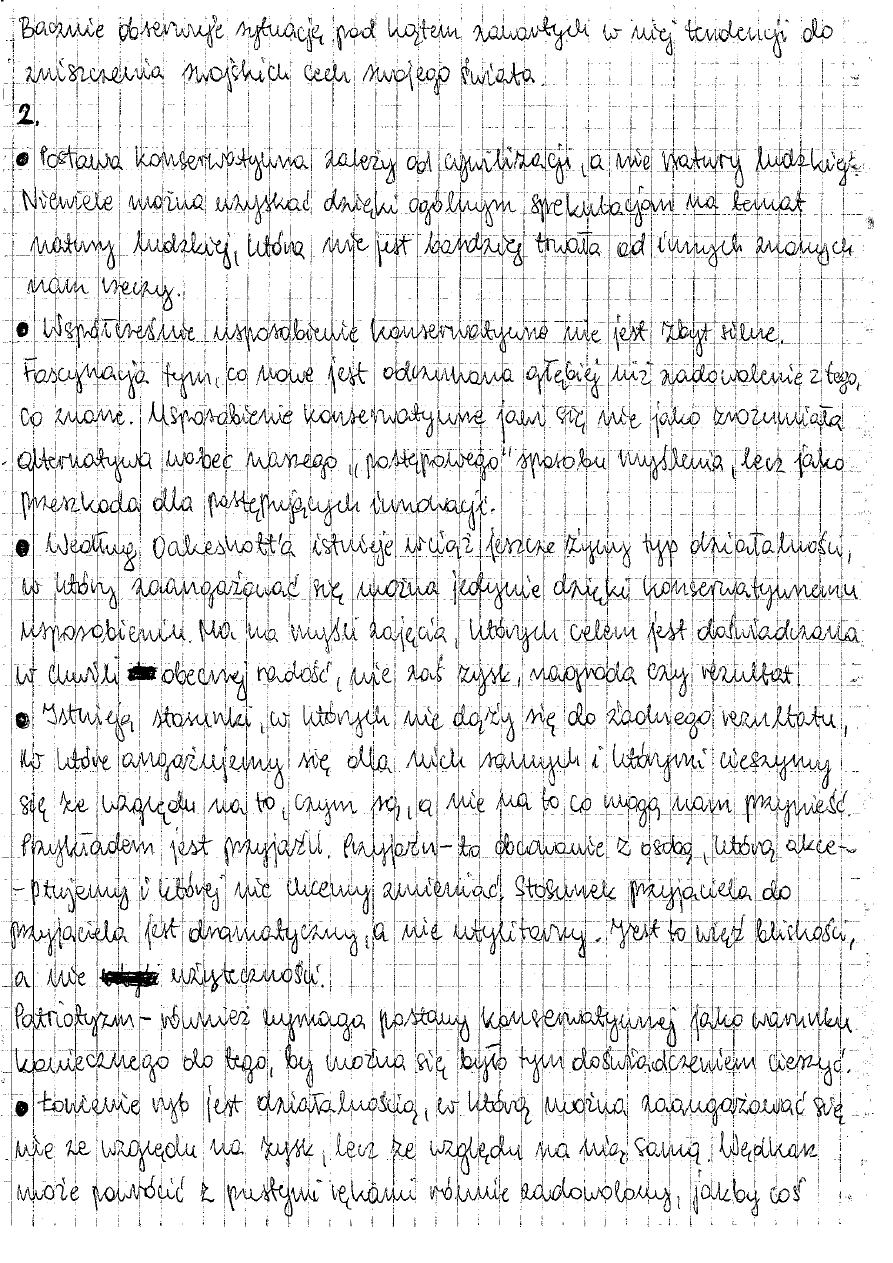 Bacznie obserwuje sytuację pod kątem zawartych w niej tendencji do
zniszczenia swojskich cech swojego świata.
2.
• Postawa konserwatywna zależy od cywilizacji, a nie natury ludzkiej.
Niewiele można uzyskać dzięki ogólnym spekulacjom na temat
natury ludzkiej, która nie jest bardziej trwała od innych znanych
nam rzeczy.
• Współcześnie usposobienie konserwatywne nie jest zbyt silne.
Fascynacja tym, co nowe jest odczuwana głębiej niż zadowolenie z tego,
co znane. Usposobienie konserwatywne jawi się nie jako zrozumiała
alternatywa wobec naszego „postępowego" sposobu myślenia, lecz jako
przeszkoda dla postępujących innowacji.
• Według Oakeshott'a istnieje wciąż jeszcze żywy typ działalności,
w który zaangażować się można jedynie dzięki konserwatywnemu
usposobieniu. Ma na myśli zajęcia, których celem jest doświadczana
w chwili obecnej radość, nie zaś zysk, nagroda czy rezultat.
• Istnieją stosunki, w których nie dąży się do żadnego rezultatu,
w które angażujemy się dla nich samych i którymi cieszymy
się ze względu na to, czym są, a nie na to co mogą nam przynieść.
Przykładem jest przyjaźń. Przyjaźń - to obcowanie z osobą, którą akce-
-ptujemy i której nie chcemy zmieniać. Stosunek przyjaciela do
przyjaciela jest dramatyczny, a nie utylitarny. Jest to więź bliskości,
a nie użyteczności.
Patriotyzm - również wymaga postawy konserwatywnej jako warunku
koniecznego do tego, by można się było tym doświadczeniem cieszyć.
• Łowienie ryb jest działalnością, w którą można zaangażować się
nie ze względu na zysk, lecz ze względu na nią samą. Wędkarz
może powrócić z pustymi rękami równie zadowolony, jakby coś